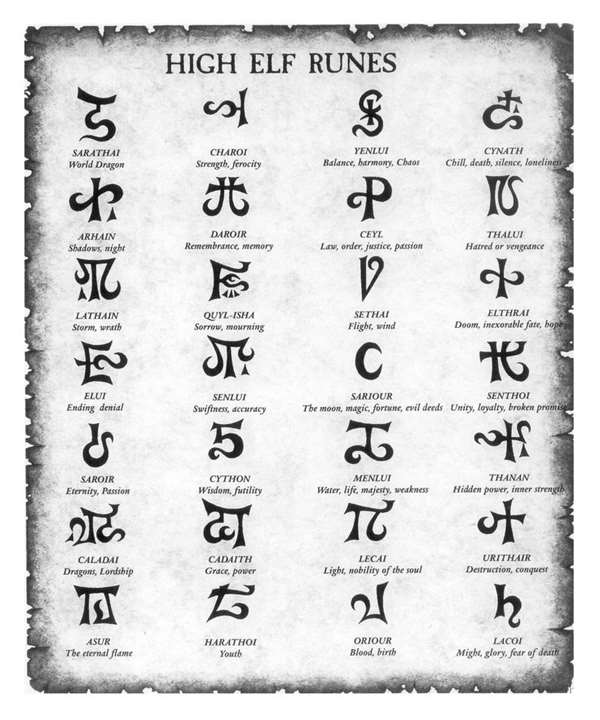 HIGH ELF RUNES
SARATHAI
World Dragon
CHAROI
Strength, ferocity
YENLUI
Balance, harmony, Chaos
CYNATH
Chill, death, silence, loneliness
ARHAIN
Shadows, night
DAROIR
Remembrance, memory
CEYL
Law, order, justice, passion
THALUI
Hatred or vengeance
LATHAIN
Storm, wrath
QUYL-ISHA
Sorrow, mourning
SETHAI
Flight, wind
ELTHRAI
Doom, inexorable fate, hope
ELUI
Ending denial
SENLUI
Swiftness, accuracy
SARIOUR
The moon, magic, fortune, evil deeds
SENTHOI
Unity, loyalty, broken promise
SAROIR
Eternity, Passion
CYTHON
Wisdom, futility
MENLUI
Water, life, majesty, weakness
THANAN
Hidden power, inner strength
CALADAI
Dragons, Lordship
CADAITH
Grace, power
LECAI
Light, nobility of the soul
URITHAIR
Destruction, conquest
ASUR
The eternal flame
HARATHOI
Youth
ORIOUR
Blood, birth
LACOI
Might, glory, fear of death